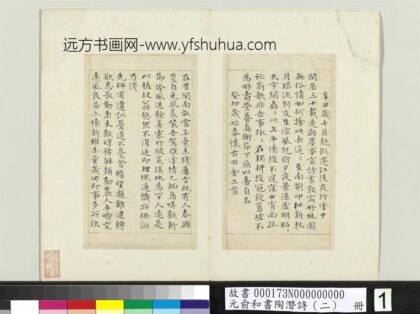 远方书画网-www.yfshuhua.com
辛丑歲七月赴假還江陵夜行塗中
閑居三十載遂與塵事冥詩書敦宿好林園
無俗情如何捨此去遙遙至南荊叩枻新秋
月臨流別友生涼風起將夕夜景湛虛明昭昭
天宇闊皛皛川上平懷役不遑寐中宵尚孤
征商歌非吾事依依在耦耕投冠旋舊墟不
為好爵縈養真衡茅下庶以善自名
癸卯歲始春懷古田舍二首
在昔聞南畝當年竟未踐屢空既有人春興
豈自免夙晨裝吾駕啟塗情已緬鳥哢歡新
節泠風送餘善寒竹被荒蹊地為罕人遠是
以植杖翁悠然不復返即理愧通識所保詎
乃淺
先師有遺訓憂道不憂貧瞻望邈難逮轉
欲志長勤秉耒歡時務解顏勸農人平疇交
遠風良苗亦懷新雖未量歲功即事多所欣
故書 000173N000000000
元俞和書陶潛詩(二) 冊
1